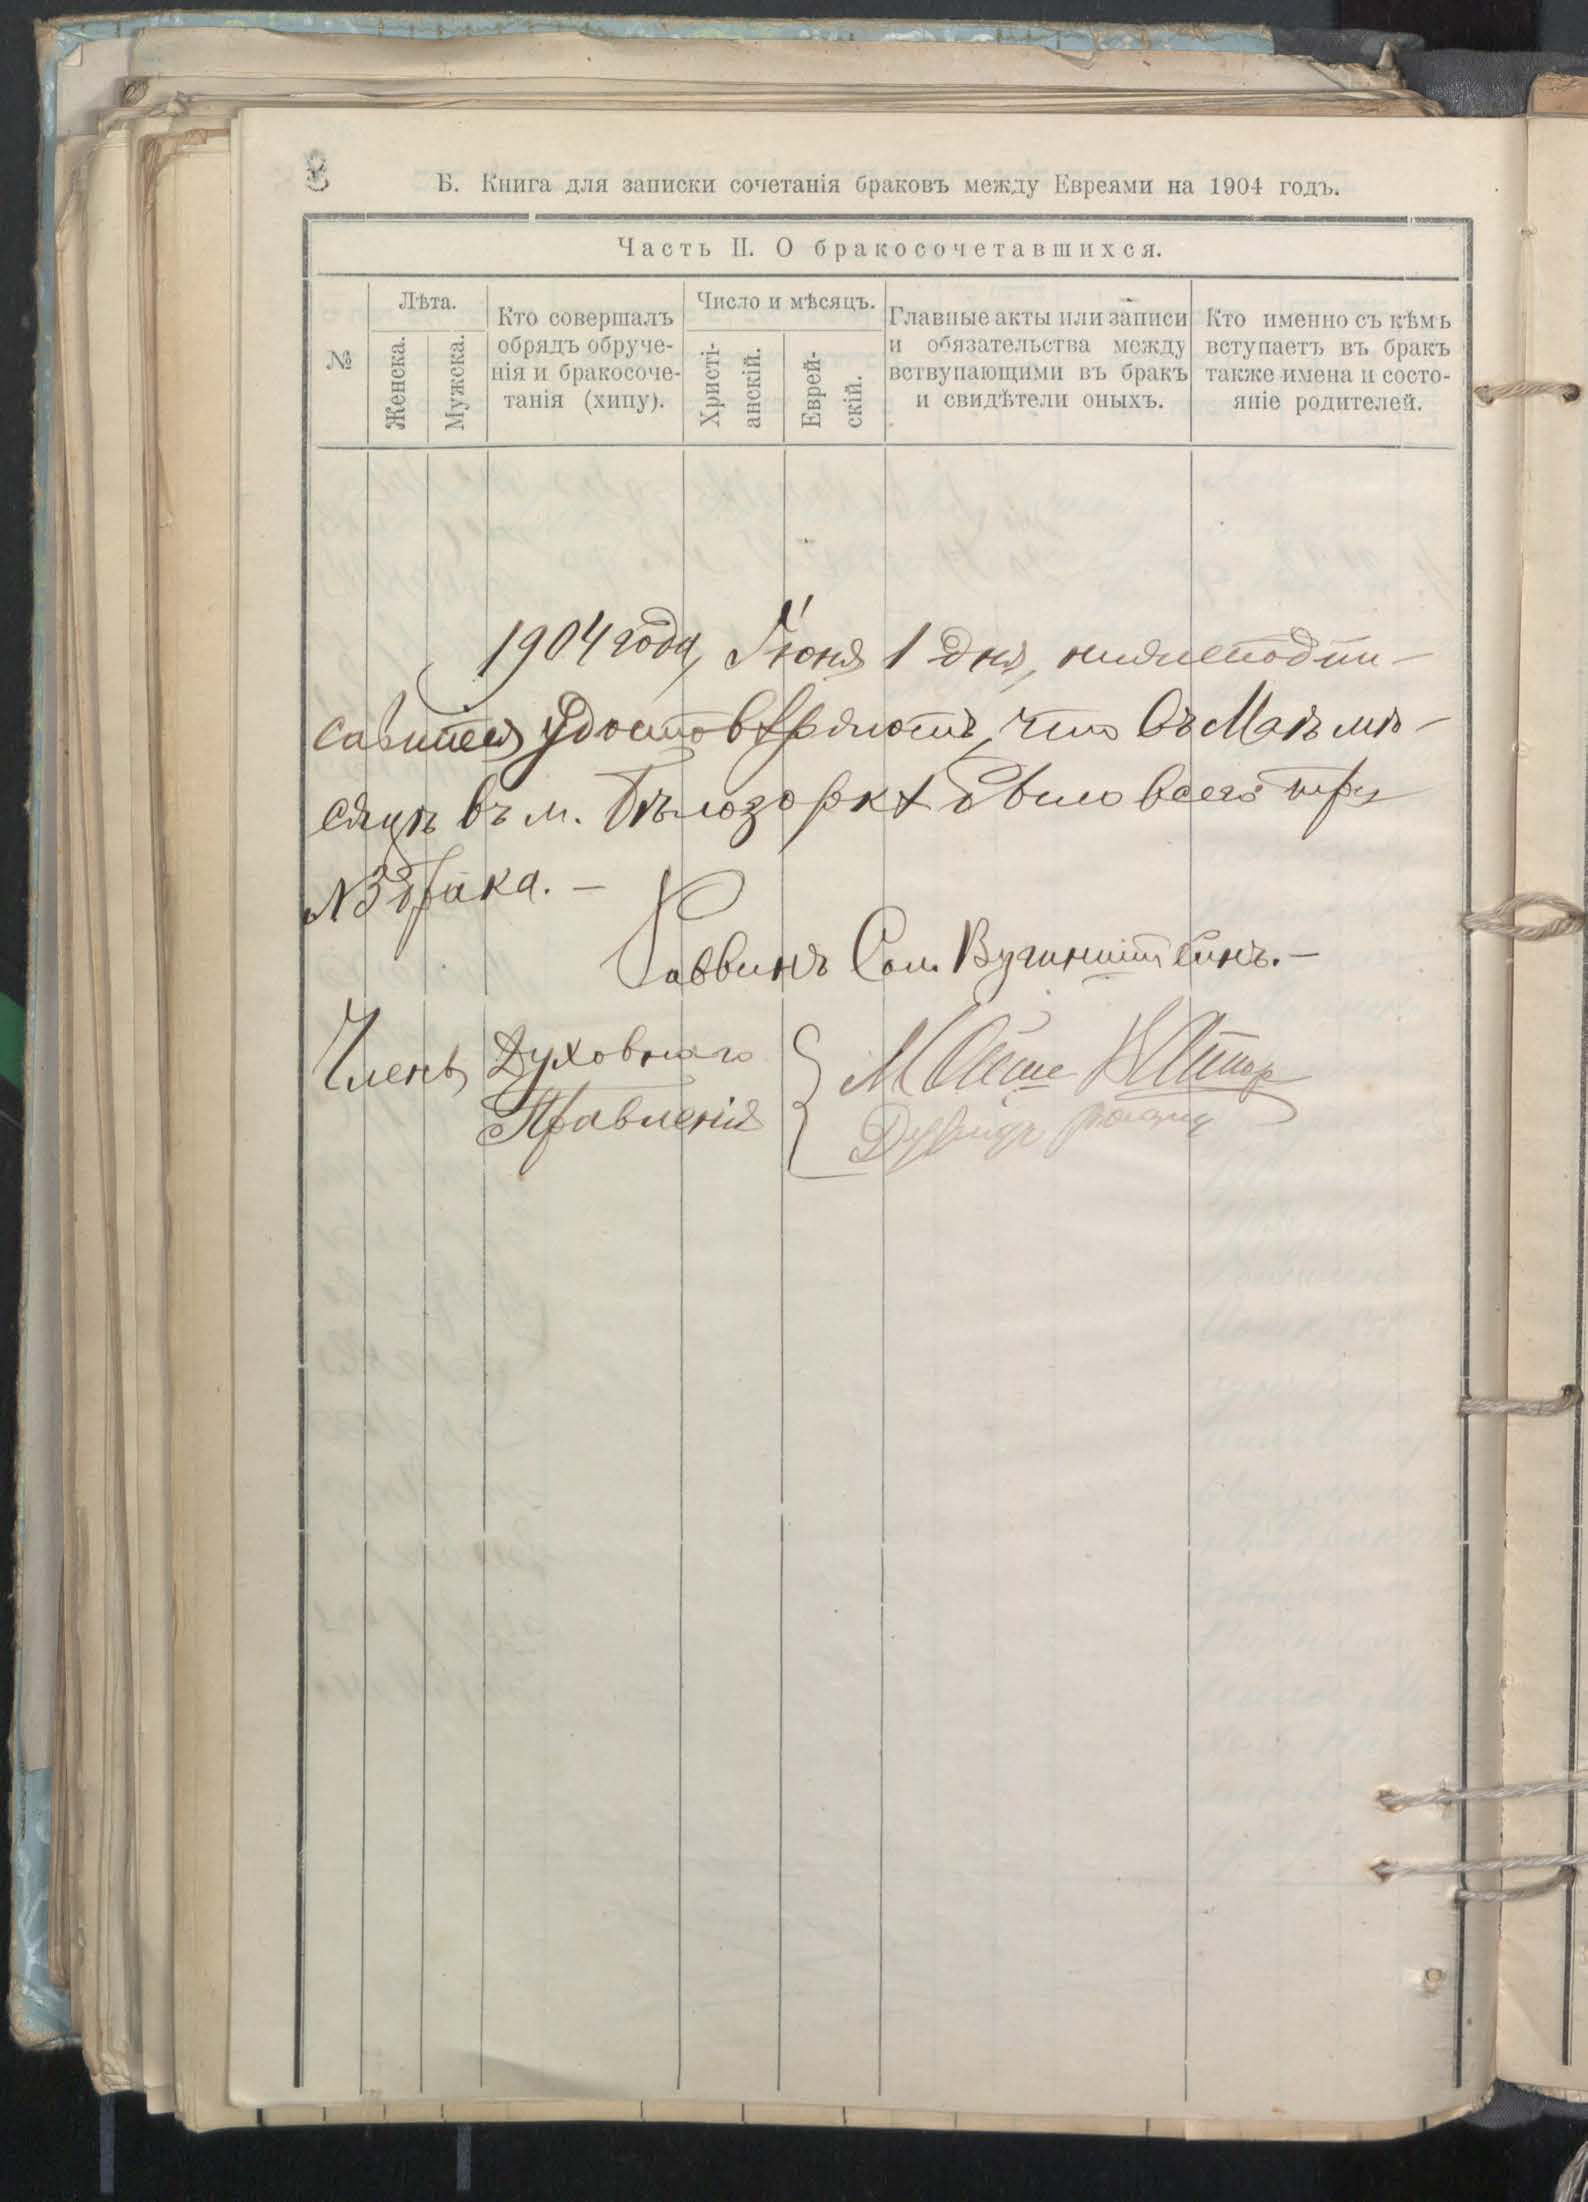 Б. Книга для записки сочетанія браковъ между Евреями на 1904 годъ.
Часть II. О бракосочетавшихся.
№
Лѣта.
Женска.
Мужска.
Кто совершалъ
обрядъ обруче-
нія и бракосоче-
танія (хипу).
Число и мѣсяцъ.
Христі-
анскій.
Еврей-
скій.
Главные акты или записи
и обязательства между
вствупающими въ бракъ
и свидѣтели оныхъ.
Кто именно съ кѣмъ
вступаетъ въ бракъ
также имена и состо-
яніе родителей.
1904 года, Іюня 1 дня, нижеподпи-
савшіеся удостовѣряютъ, что въ Маѣ мѣ-
сяцѣ въ м. Бѣлозоркѣ было всего три
№3 брака. —
Раввинъ Сол. Вугинштейнъ. —
Члены Духовнаго
Правленія